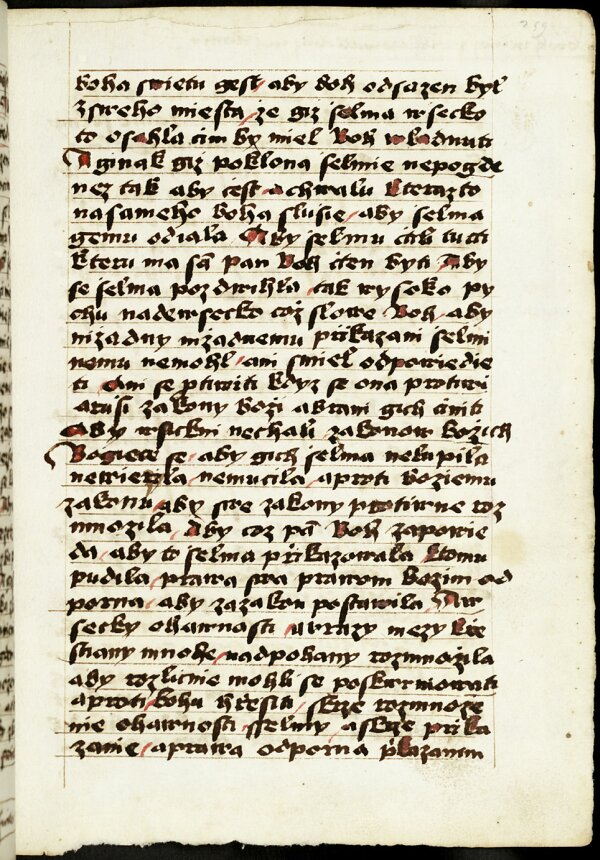 259
boha swietu gest / aby boh odsazen był
zsweho miesta / ze giz selma wsecko
to osahla cim by miel Boh wladnuti
A ginak giz poklona selmie nepogde
nez tak aby cest / a chwalu Kterazto
nasameho boha slusie / aby selma
gemu odiala / Aby selmu ctili lucti
kteru ma sā pan Boh cten byti Aby
se selma pozdwihla / tak wysoko py
chu nadewsecko coz slowe Boh / aby
nizadny nizadnemu přikazani selmi
nemu nemohł / ani smieł odpowiedie
ti Ani se ptiwiti kdyz se ona protiwi
a rusi zakony bozi a brani gich ciniti
Aby wsickni nechali zakonow bozich
Bogiece se / aby gich selma nelupila
netriezla / nemucila / aproti boziemu
zakonu / aby swe zakony protiwne roz
mnozila / Aby coz pā Boh zapowie
da / aby to selma přikazowala Ktomu
pudila / prawa swa prawom bozim od
porna / aby zazakon postawila / Aw
secky ohawnosti / a vrazy mezy kře
stiany mnohe / nadpohany rozmnozila
aby rozlicnie mohli se poskwrnowati
aproti bohu hřesiti / skrze rozmnoze
nie ohawnosti / selmy / askrze přika
zanie / aprawa odporna přikazanim